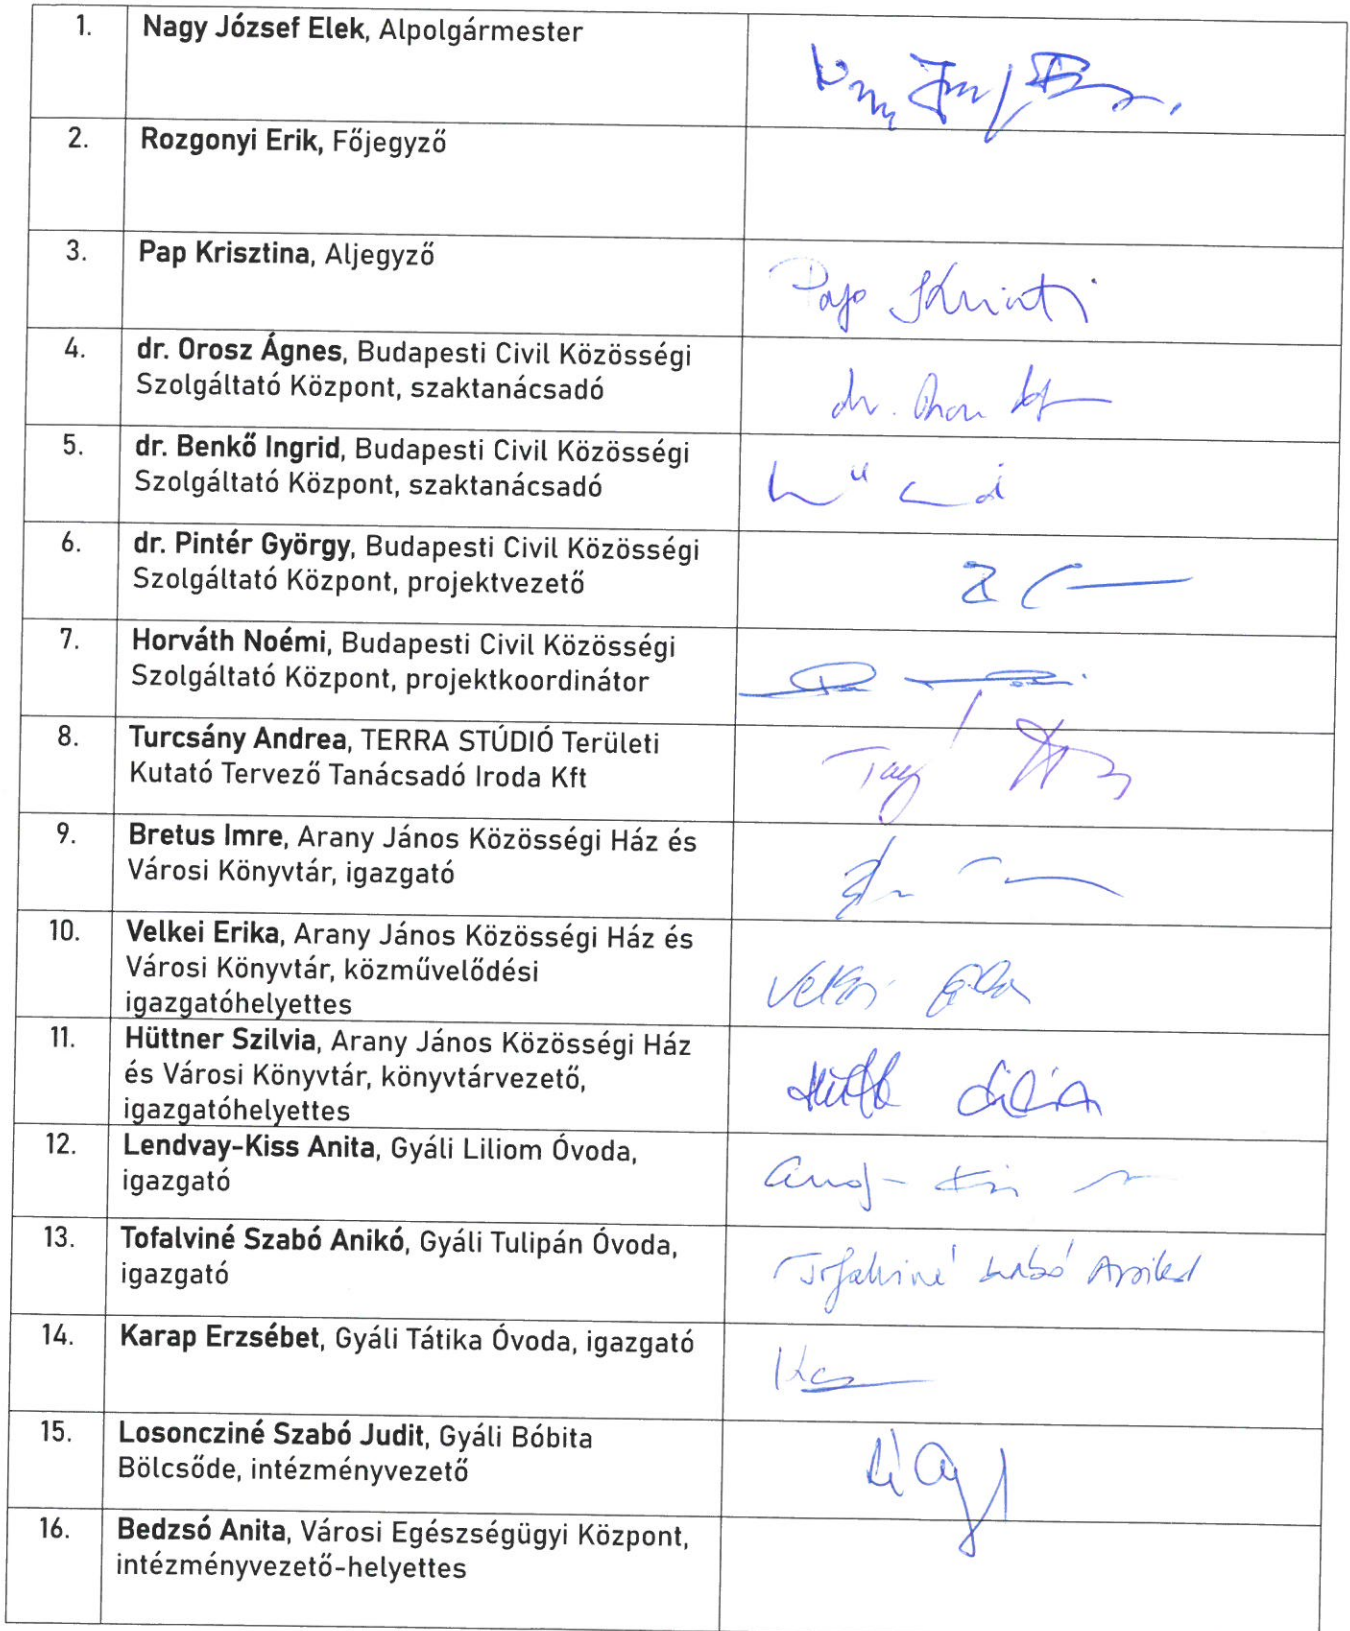 1. Nagy József Elek, Alpolgármester
2. Rozgonyi Erik, Főjegyző
3. Pap Krisztina, Aljegyző
Pap Kriszti
4. dr. Orosz Ágnes, Budapesti Civil Közösségi
Szolgáltató Központ, szaktanácsadó
dr.
5. dr. Benkő Ingrid, Budapesti Civil Közösségi
Szolgáltató Központ, szaktanácsadó
6. dr. Pintér György, Budapesti Civil Közösségi
Szolgáltató Központ, projektvezető
7. Horváth Noémi, Budapesti Civil Közösségi
Szolgáltató Központ, projektkoordinátor
8. Turcsány Andrea, TERRA STÚDIÓ Területi
Kutató Tervező Tanácsadó Iroda Kft
9. Bretus Imre, Arany János Közösségi Ház és
Városi Könyvtár, igazgató
10. Velkei Erika, Arany János Közösségi Ház és
Városi Könyvtár, közművelődési
igazgatóhelyettes
Velkei Erika
11. Hüttner Szilvia, Arany János Közösségi Ház
és Városi Könyvtár, könyvtárvezető,
igazgatóhelyettes
12. Lendvay-Kiss Anita, Gyáli Liliom Óvoda,
igazgató
13. Tofalviné Szabó Anikó, Gyáli Tulipán Óvoda,
igazgató
Tofalviné Szabó Anikó
14. Karap Erzsébet, Gyáli Tátika Óvoda, igazgató
15. Losoncziné Szabó Judit, Gyáli Bóbita
Bölcsőde, intézményvezető
16. Bedzsó Anita, Városi Egészségügyi Központ,
intézményvezető-helyettes